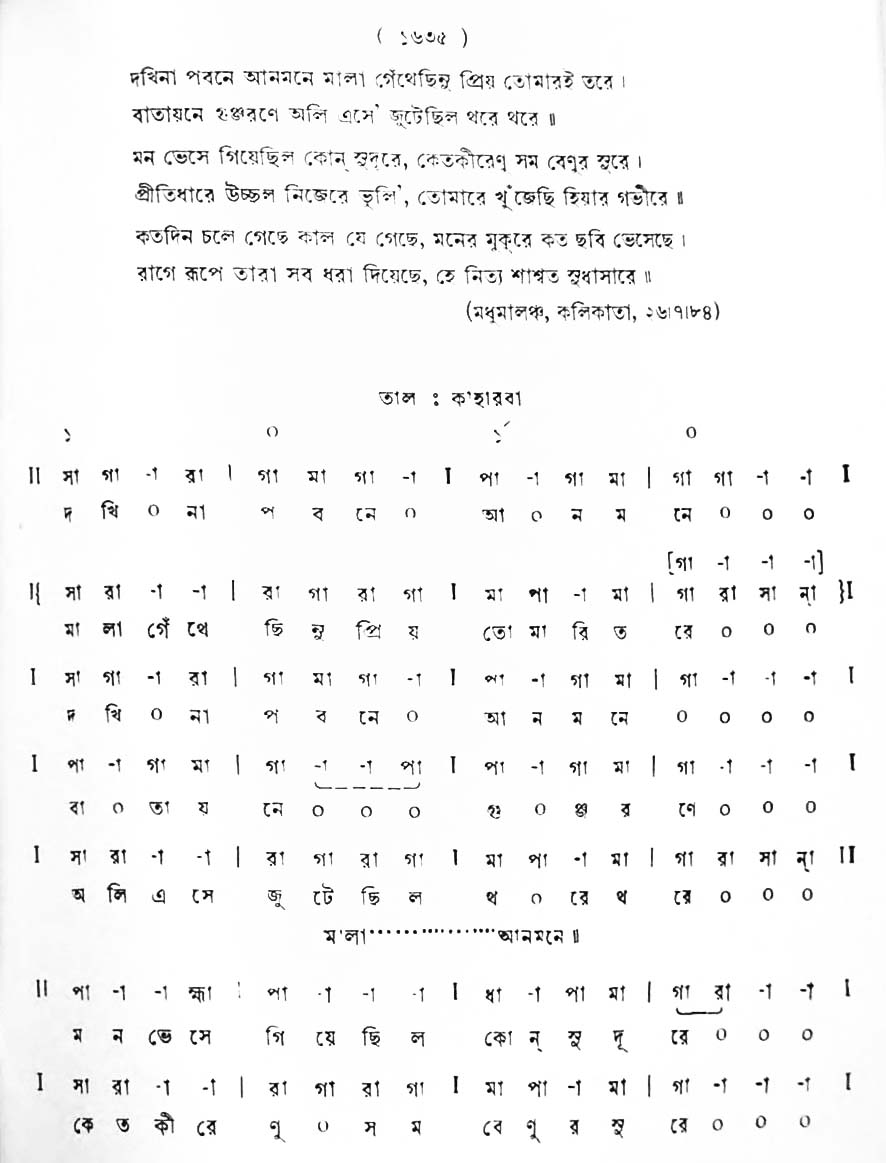 ( ১৬৩৫ )
দখিনা পবনে আনমনে মালা গেঁথেছিনু প্রিয় তোমারই তরে ।
বাতায়নে গুঞ্জরণে অলি এসে' জুটেছিল থরে থরে ॥
মন ভেসে গিয়েছিল কোন্ সুদূরে, কেতকীরেণু সম বেণুর সুরে ।
প্রীতিধারে উচ্ছল নিজেরে ভুলি', তোমারে খুঁজেছি হিয়ার গভীরে ॥
কতদিন চলে গেছে কাল যে গেছে, মনের মুকুরে কত ছবি ভেসেছে ।
রাগে রূপে তারা সব ধরা দিয়েছে, হে নিত্য শাশ্বত সুধাসারে ॥
(মধুমালঞ্চ, কলিকাতা, ২৬।৭।৮৪)
তাল : ক'হারবা
১ ০ ১´ ০
II সা গা -া রা | গা মা গা -া I পা -া গা মা | গা গা -া -া I
দ খি ০ না প ব নে ০ আ ০ ন ম নে ০ ০ ০
[গা -া -া -া]
I{ সা রা -া -া | রা গা রা গা I মা পা -া মা | গা রা সা ন্া }I
মা লা গেঁ থে ছি নু প্রি য় তো মা রি ত রে ০ ০ ০
I সা গা -া রা | গা মা গা -া I পা -া গা মা | গা -া -া -া I
দ খি ০ না প ব নে ০ আ ন ম নে ০ ০ ০ ০
I পা -া গা মা | গা -া -া পা I পা -া গা মা | গা -া -া -া I
বা ০ তা য় নে ০ ০ ০ গু ০ ঞ্জ র ণে ০ ০ ০
I সা রা -া -া | রা গা রা গা I মা পা -া মা | গা রা সা ন্া II
অ লি এ সে জু টে ছি ল থ ০ রে থ রে ০ ০ ০
মালা..................আনমনে ॥
II পা -া -া হ্মা | পা -া -া -া I ধা -া পা মা | গা রা -া -া I
ম ন ভে সে গি য়ে ছি ল কো ন্ সু দূ রে ০ ০ ০
I সা রা -া -া | রা গা রা গা I মা পা -া মা | গা -া -া -া I
কে ত কী রে ণু ০ স ম বে ণু র সু রে ০ ০ ০